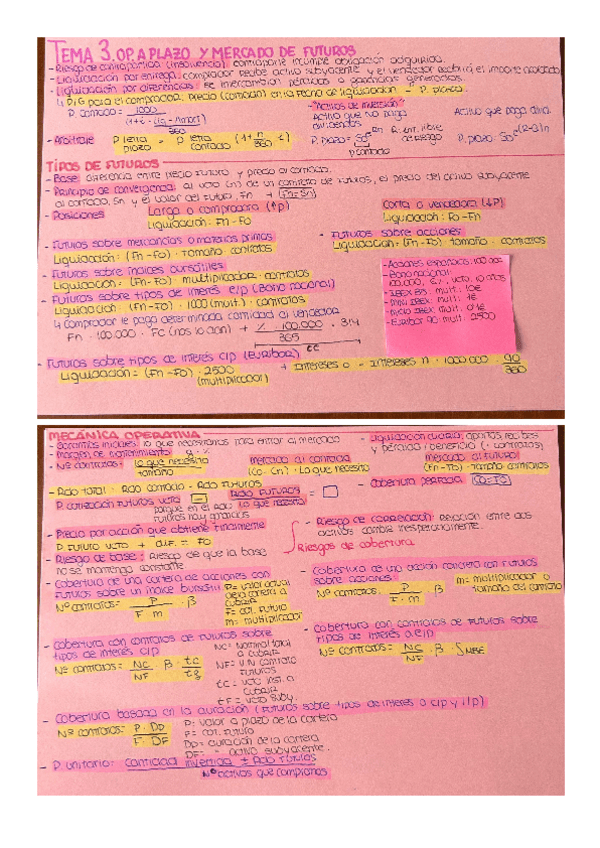 TEMA 3. OP A PLAZO Y MERCADO DE FUTUROS
- Riesgo de contrapartida (insolvencia): contraparte incumple obligación adquirida.
- Liquidación por entrega: comprador recibe activo subyacente y el vendedor recibirá el importe pactado
- Liquidación por diferencias: se intercambian pérdidas o ganancias generadas.
P/G para el comprador: Precio (contado) en la fecha de liquidación - P. plazo
P. contado = 1000
360
"Activos de inversión"
Activo que no paga dividendos
Activo que paga divid.
R: int. libre de riesgo
P. contado
- Arbitraje P letra plazo = P letra contado (1 + n/360 · i)
TIPOS DE FUTUROS
- Base: diferencia entre precio futuro y precio al contado.
- Principio de convergencia: al vcto (n) de un contrato de futuros, el precio del activo subyacente
al contado, Sn y el valor del futuro, Fn → Fn = Sn
- Posiciones
Larga o compradora (↑P)
Liquidación: Fn - F0
Corta o vendedora (↓P)
Liquidación: F0 - Fn
- Futuros sobre mercancías o materias primas
Liquidación = (Fn - F0) · tamaño contratos
- Futuros sobre acciones
Liquidación: (Fn - F0) · tamaño · contratos
- Futuros sobre índices bursátiles
Liquidación = (Fn - F0) · multiplicador · contratos
- Futuros sobre tipos de interés l/p (Bono nacional)
Liquidación = (Fn - F0) · 1000 (mult.) · contratos
↳ Comprador le paga determinada cantidad al vendedor
Fn · 100.000 · FC (nos lo dan) + % · 100.000 · 314
365
CC
- Acciones españolas: 100 acc
- Bono nacional:
100.000, 6%, vcto. 10 años
- IBEX 35: mult. 10€
- Mini IBEX: mult. 1€
- Micro IBEX: mult. 0'1€
- Euribor 90: mult. 2500
- Futuros sobre tipos de interés c/p (EURIBOR)
Liquidación = (Fn - F0) · 2500
(multiplicador)
+ Intereses 0 - Intereses n · 1000.000 · 90/360
MECÁNICA OPERATIVA
- Garantías iniciales: lo que necesitamos para entrar al mercado
- Margen de mantenimiento: g · %
- Nº contratos: lo que necesito / tamaño
- Liquidación diaria: aportas recibes
y pérdida / beneficio (· contratos)
mercado al contado
(C0 - Cn) · Lo que necesito
mercado al futuro
(Fn - F0) · tamaño contratos
- Rdo total = Rdo contado + Rdo futuros
- Cobertura perfecta: C0 = F0
P. cotización futuros vcto - Rdo futuros / lo que necesito =
porque en el Rdo
futuros hay ganancias
- Precio por acción que obtiene finalmente
P. futuro vcto + dif. = F0
- Riesgo de base: riesgo de que la base
no se mantenga constante
- Riesgo de correlación: Relación entre dos
activos cambie inesperadamente.
Riesgos de cobertura
- Cobertura de una cartera de acciones con
futuros sobre un índice bursátil
Nº contratos = P / F · m · β
P = valor actual
de la cartera a
cubrir
F = cot. futuro
m = multiplicador
- Cobertura de una acción concreta con futuros
sobre acciones:
Nº contratos: P / F · m · β
m = multiplicador o
tamaño del contrato
- Cobertura con contratos de futuros sobre
tipos de interés c/p
Nº contratos = NC / NF · β · tc / tf
NC = Nominal total
a cubrir
NF = V.N contrato
futuros
tc = vcto inst. a
cubrir
tF = vcto suby.
- Cobertura con contratos de futuros sobre
tipos de interés l/p
Nº contratos = NC / NF · β
- Cobertura basada en la duración (futuros sobre tipos de interés a c/p y l/p)
Nº contratos: P · Dp / F · DF
P: valor a plazo de la cartera
F = cot. futuro
Dp = duración de la cartera
DF = " activo subyacente.
- P unitario: cantidad invertida ± Rdo futuros
Nº activos que compramos